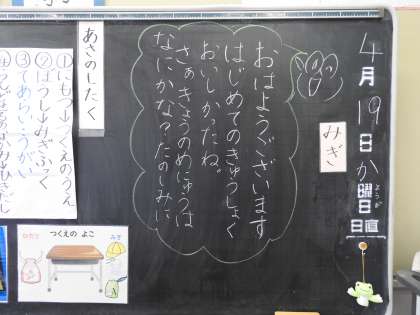 4月19日か曜日
ようび
日直
みぎ
おはようございます
はじめてのきゅうしょく
おいしかったね。
さぁきょうのめにゅうは
なにかな？たのしみに
あさのしたく
①にもつ→つくえのうえ
②ぼうし→みぎふっく
③てあらい・うがい
④
つくえの よこ
みぎ